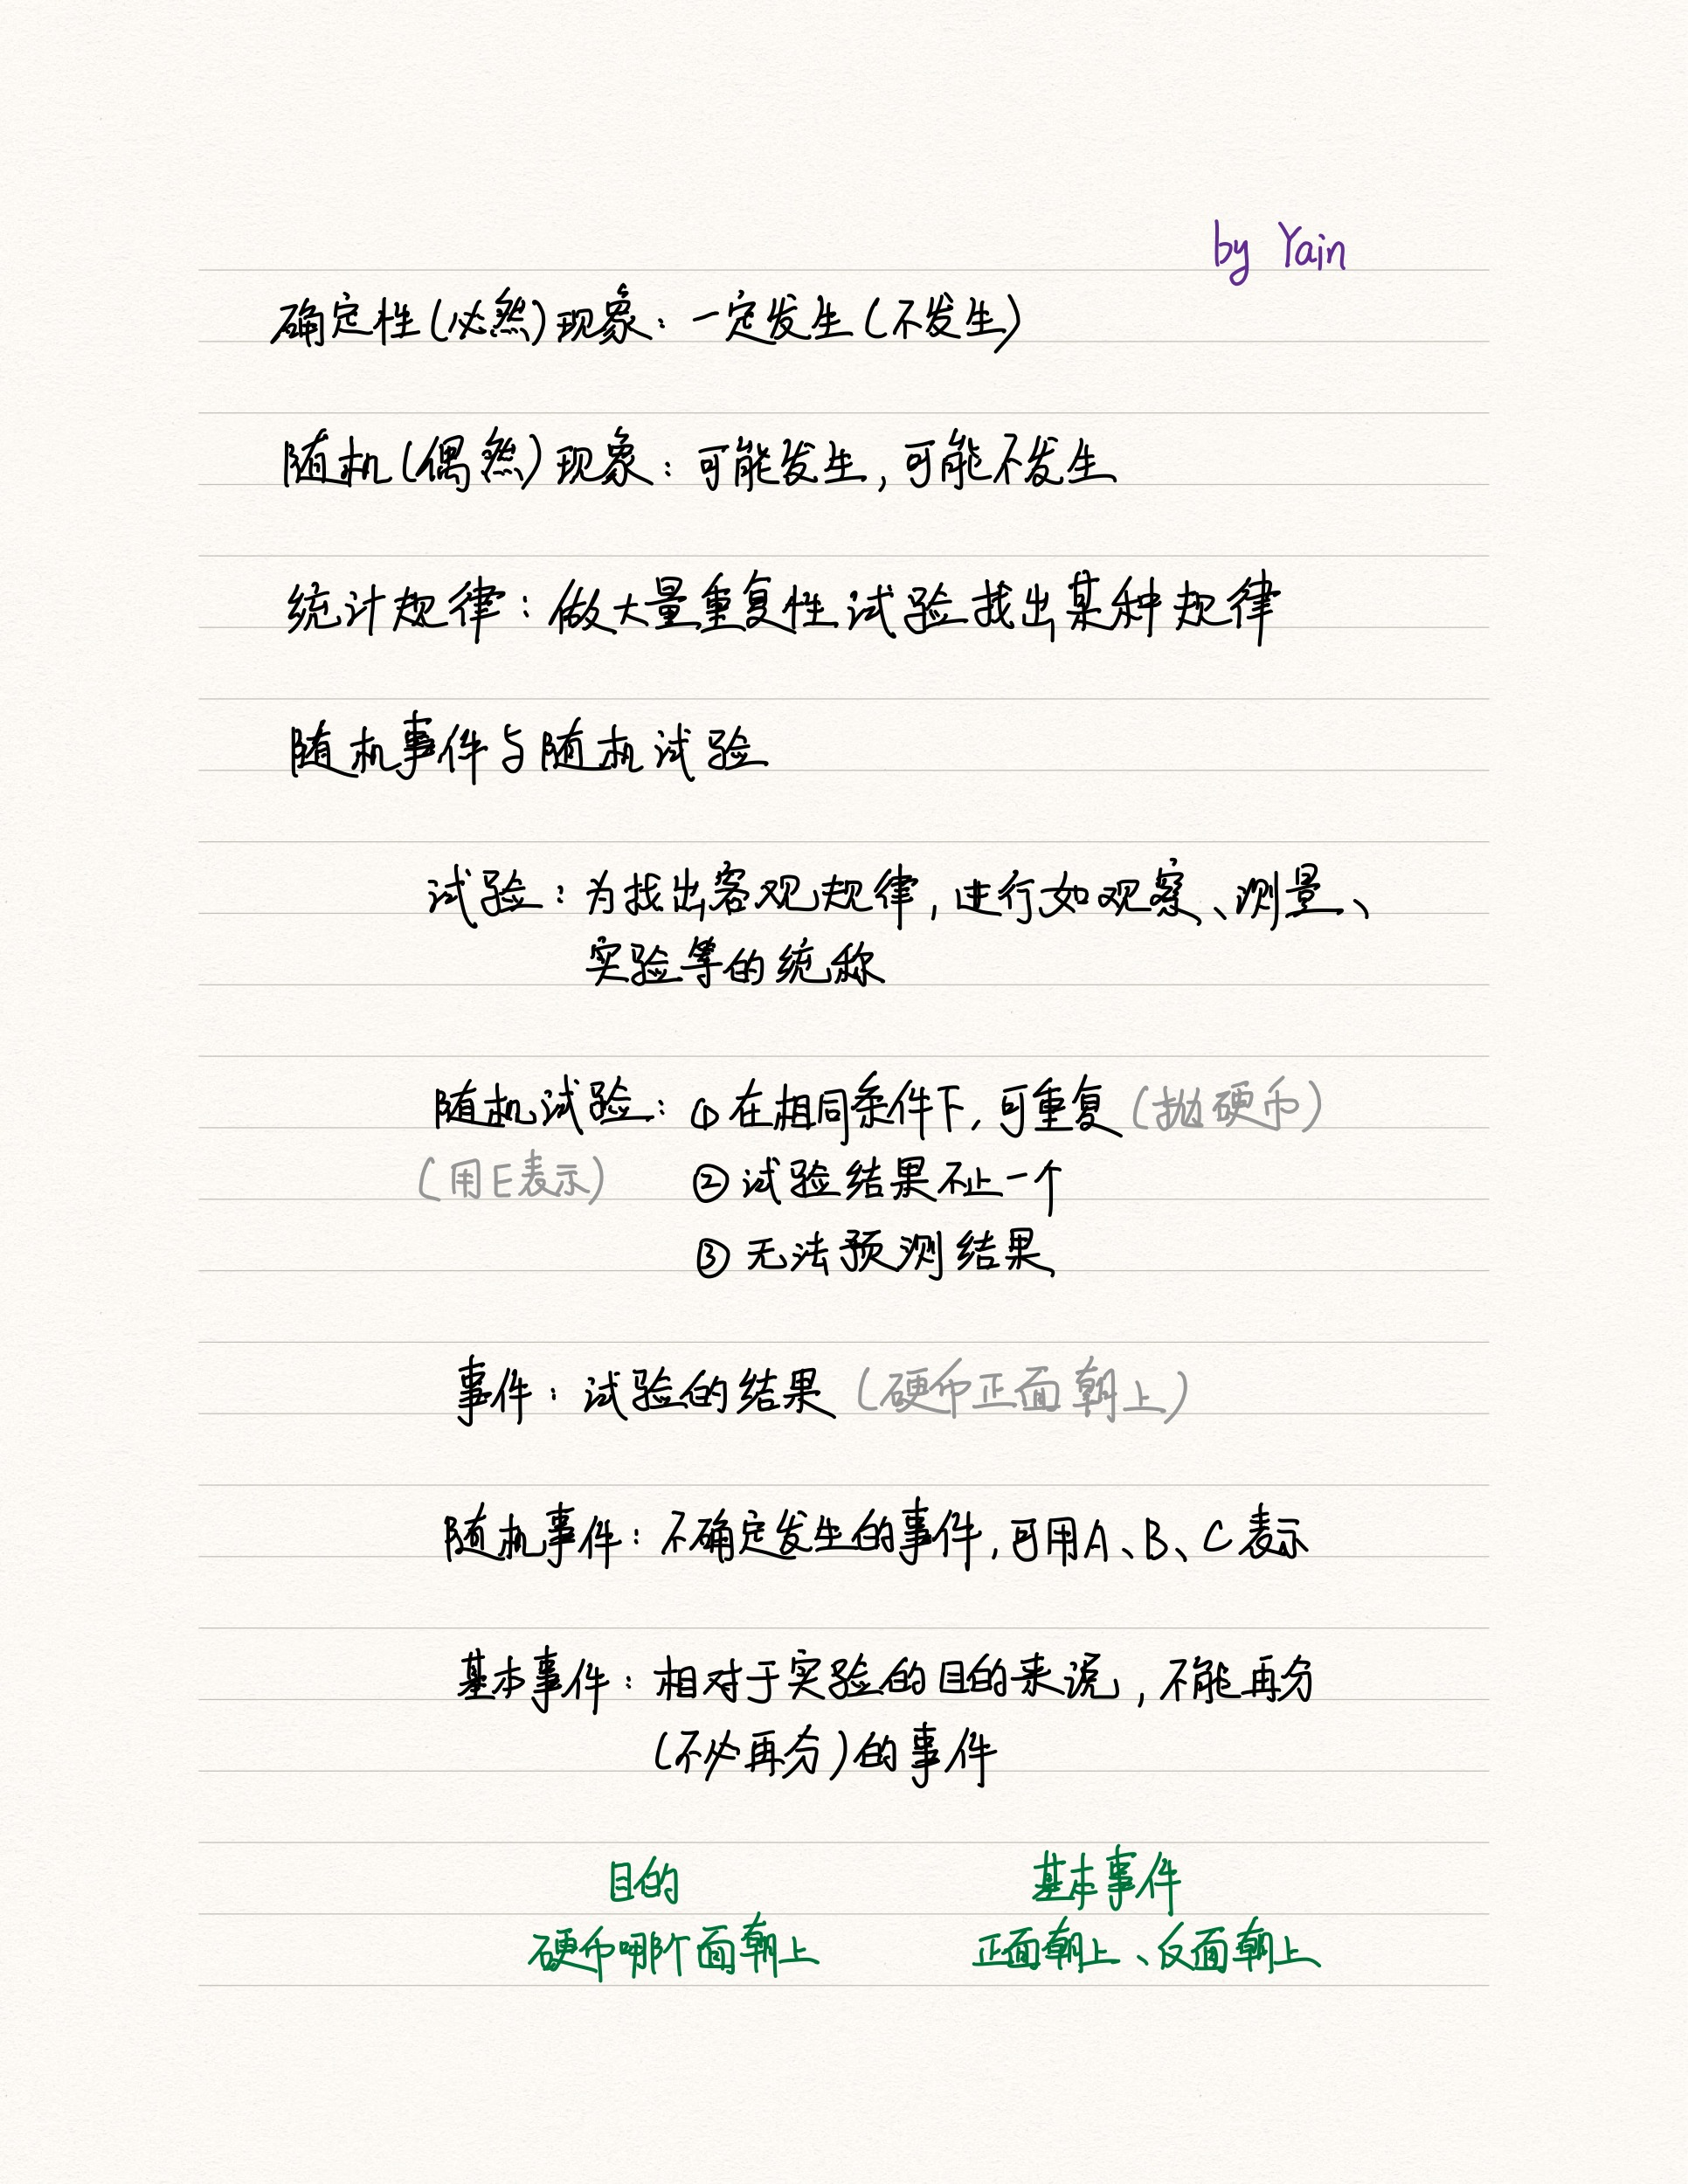 by Yain
确定性(必然)现象：一定发生(不发生)
随机(偶然)现象：可能发生,可能不发生
统计规律：做大量重复性试验找出某种规律
随机事件与随机试验
试验：为找出客观规律,进行如观察、测量、
实验等的统称
随机试验：①在相同条件下,可重复(抛硬币)
(用E表示) ②试验结果不止一个
③无法预测结果
事件：试验的结果(硬币正面朝上)
随机事件：不确定发生的事件,可用A、B、C表示
基本事件：相对于实验的目的来说,不能再分
(不必再分)的事件
目的 基本事件
硬币哪个面朝上 正面朝上、反面朝上